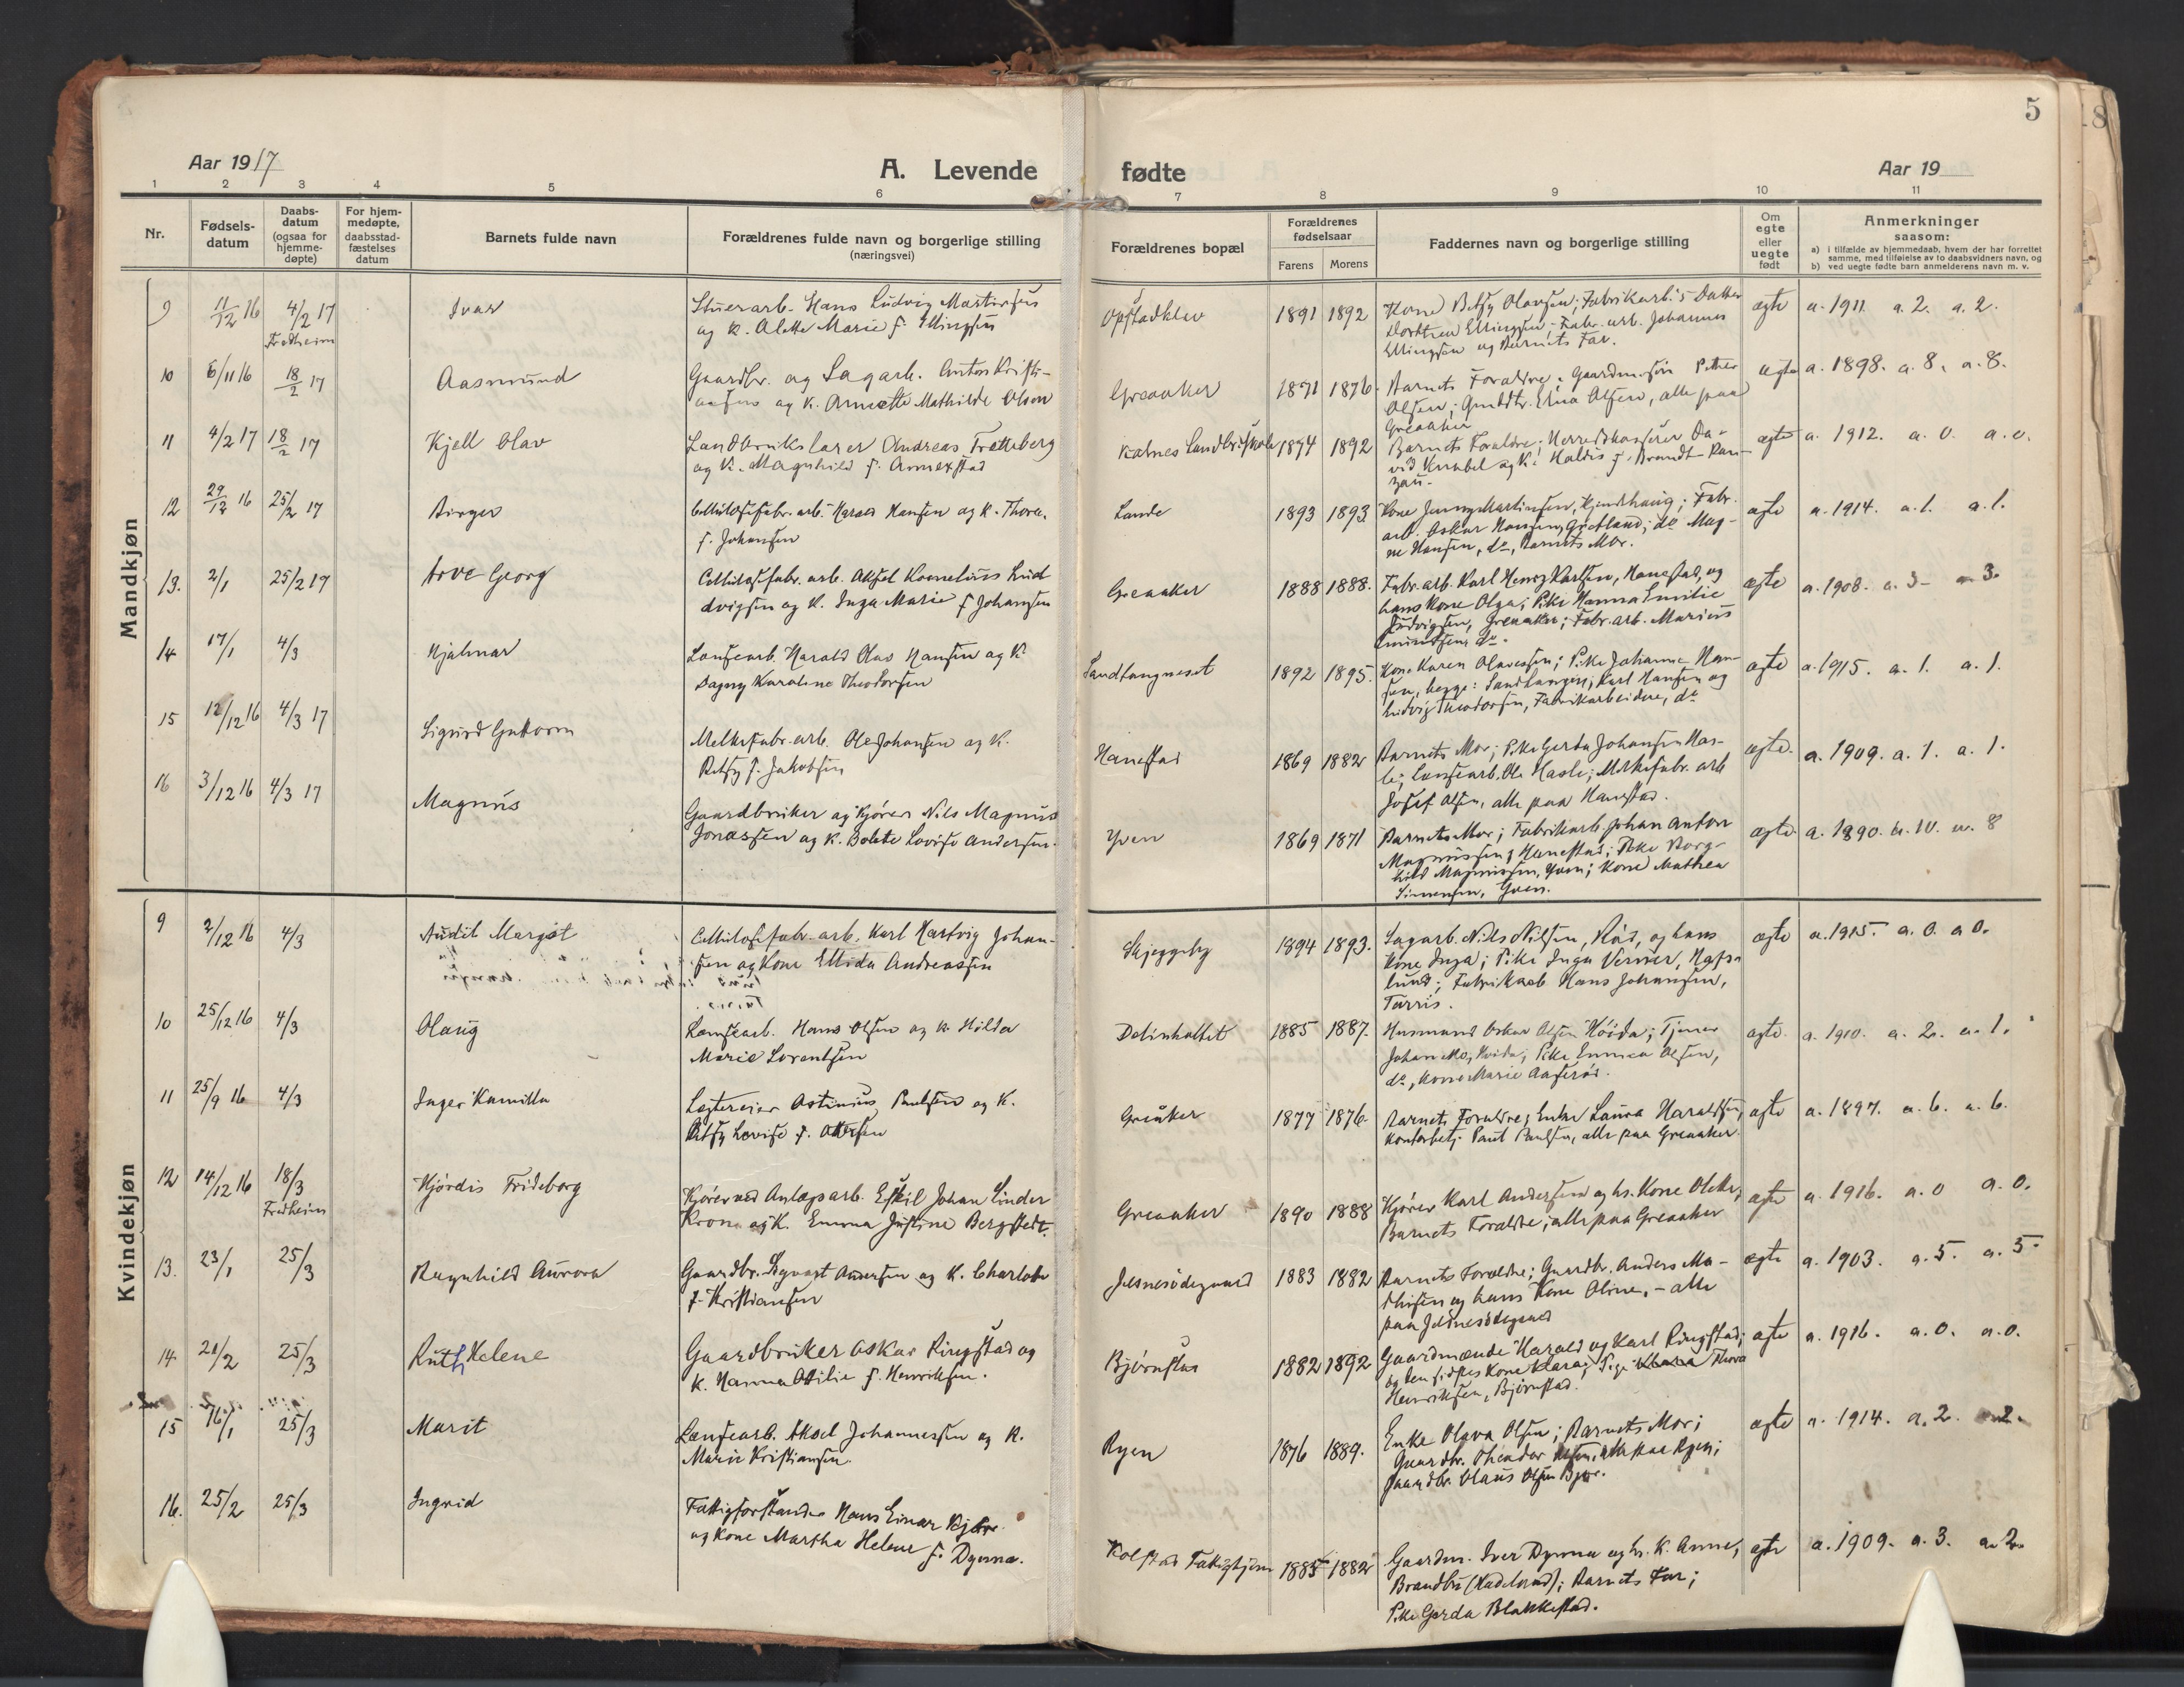 5
Aar 1917
A. Levende fødte
Aar 19
1 2 3 4 5 6 7 8 9 10 11
Nr.
Fødsels-
datum
Daabs-
datum
(ogsaa for
hjemme-
døpte)
For hjem-
medøpte,
daabsstad-
fæstelses
datum
Barnets fulde navn
Forældrenes fulde navn og borgerlige stilling
(næringsvei)
Forældrenes bopæl
Forældrenes
fødselsaar
Farens Morens
Faddernes navn og borgerlige stilling
Om
egte
eller
uegte
født
Anmerkninger
saasom:
a) i tilfælde av hjemmedaab, hvem der har forrettet
samme, med tilføielse av to daabsvidners navn, og
b) ved uegte fødte barn anmelderens navn m. v.
Mandkjøn
9 11/12 16 4/2 17 Fredheim
Ivar
Stuerarb. Hans Ludvig Martinsen
og K. Alette Marie f. Ellingsen
Opstadklev 1891 1892
Kone Betsy Olavsen; Fabrikarb.s Datter
Dorthea Ellingsen; Fabr. arb. Johannes
Ellingsen og Barnets Far.
ægte a. 1911. a. 2. a. 2.
10 6/11 16 18/2 17
Aasmund
Gaardbr. og Sagarb. Anton Kristi-
ansen og K. Annette Mathilde Olsen
Greaaker 1871 1876
Barnets Forældre; Gaardm.søn Petter
Olsen; Gmddtr. Olsen, alle paa
Greaaker
ægte a. 1898. a. 8. a. 8.
11 4/2 17 18/2 17
Kjell Olav
Landbrukslærer Andreas Tratteberg
og K. Magnhild f. Annexstad
Kalnes Landbr.skole 1894 1892
Barnets Forældre; Herredskasserer Da-
vid Knabel og K. Haldis f. Brandt-Ran-
zau.
ægte a. 1912. a. 0. a. 0.
12 29/12 16 25/2 17
Birger
Cellulosefabr. arb. Harald Hansen og K. Thora
f. Johansen
Lande 1893 1893
Kone Jenny Martinsen, ; Fabr.
arb. Oskar Hansen, ; do Mag-
ne Hansen, do, Barnets Mor.
ægte a. 1914. a. 1. a. 1.
13. 2/1 25/2 17
Arve Georg
Cellulosefabr. arb. Aksel Kornelius Lud
dvigsen og K. Inga Marie f. Johansen
Greaaker 1888 1888.
Fabr. arb. Karl Henry Karlsen, Hanestad, og
hans Kone Olga; Pike Hanna Emilie
Ludvigsen, Greaaker; Fabr. arb. Marius
do.
ægte a. 1908. a. 3- a 3.
14 17/1 4/3
Hjalmar
Lænsearb. Harald Olaf Hansen og K.
Dagny Karoline Theodorsen
Sandtangneset 1892 1895.
Kone Karen Olavesen; Pike Johanne Han-
sen, begge: Sandtangen; Karl Hansen og
Ludvig Theodorsen, Fabrikarbeidere, do
ægte a. 1915. a. 1. a. 1.
15 12/12 16 4/3 17
Sigurd Guttorm
Melkefabr. arb. Ole Johansen og K.
Betsy f. Jakobsen
Hanestad 1869 1882
Barnets Mor; Pike Gerda Johansen Has-
le; Lænsearb. Ole Hasle; Melkefabr. arb
Josef Olsen, alle paa Hanestad.
ægte. a. 1909. a. 1. a. 1.
16 3/12 16 4/3 17
Magnus
Gaardbruker og Kjører Nils Magnus
Jonassen og K. Bolete Lovise Andersen.
Yven 1869 1871
Barnets Mor; Fabrikarb. Johan Anton
Magnussen, Hanestad; Pike Borg-
hild Magnussen, Yven; Kone Mathea
Simensen, Yven.
ægte. a. 1890. a. 10. a. 8
Kvindekjøn
9 2/12 16 4/3
Audil Margot
Cellulosefabr. arb. Karl Hartvig Johan-
sen og Kone Ellida Andreassen
Skjeggeby 1894 1893.
Sagarb. Nils Nilsen, Råd, og hans
Kone Inga; Pike Inga Verner, Hafs-
lund; Fabrikarb Hans Johansen,
Tarris.
ægte a. 1915. a. 0. a 0.
10 25/12 16 4/3
Olaug
Lænsearb. Hans Olsen og K. Hilda
Marie Lorentsen
Dolinhaltet 1885 1887.
Husmand Oskar Olsen Höida; Tjener
Johan Mo, Hoida; Pike Emma Olsen,
do, Kone Marie Aaserød.
ægte. a. 1910. a. 2. a. 1.
11 25/9 16 4/3
Inger Kamilla
Lægtereier Astinius Paulsen og K.
Betsy Lovise f. Ottersen
Greåker 1877 1876.
Barnets Forældre; Enke Laura Haraldsen,
Kontorbetj. Paul Paulsen, alle paa Greaaker
ægte a. 1897. a. 6. a. 6.
12 14/12 16 18/3 Fredheim
Hjördis Frideborg
Kjører ved Anlægsarb. Eskil Johan Linder
Krone og K. Emma Justine Bergstedt.
Greaaker 1890 1888
Kjører Karl Andersen og hs. Kone Olette;
Barnets Forældre; alle paa Greaaker
ægte a. 1916. a. 0 a. 0.
13. 23/1 25/3
Ragnhild Aurora
Gaardbr. Sigvart Andersen og K. Charlotte
f. Kristiansen
Jelsnesödegaard 1883 1882
Barnets Forældre; Gaardbr. Anders Ma-
thisen og hans Kone Oline, - alle
paa Jelsnesödegaard
ægte a. 1903. a. 5. a. 5.
14 21/2 25/3
Ruth Helene
Gaardbruker Oskar Ringstad og
K. Hanna Otilie f. Henriksen.
Bjørnstad 1882 1892
Gaardmænde Harald og Karl Ringstad;
og den sidstes Kone Klara; Pige Thora
Henriksen, Bjørnstad.
ægte a. 1916. a. 0. a. 0.
15 16/1 25/3
Marit
Lænsearb. Aksel Johannessen og K.
Marie Kristiansen.
Ryen 1876 1889.
Enke Olava Olsen; Barnets Mor;
Gaardbr. Theodor Olsen, alle paa Ryen;
Gaardbr. Olaus Olsen Bjøre.
ægte a. 1914. a. 2. a. 2.
16. 25/2 25/3
Ingrid
Fattigforstander Hans Einar Bjerve
og Kone Martha Helene f. Dynna.
Kolstad Fattighjem 1885 1882
Gaardm. Iver Dynna og hs. K. Anne,
Brandbu (Hadeland); Barnets Far;
Pike Gerda Blakkestad.
ægte a. 1909. a. 3. a. 2.